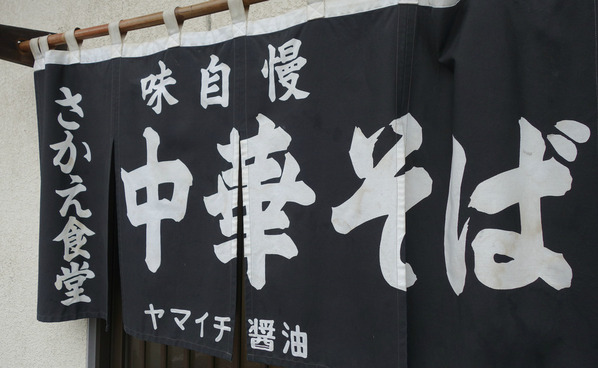 味自慢
中華そば
さかえ食堂
ヤマイチ醤油